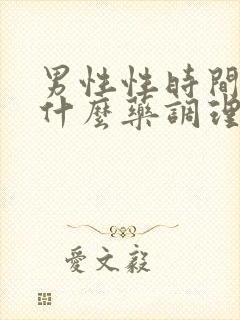 男性性時間
什麼藥調理
愛文毅